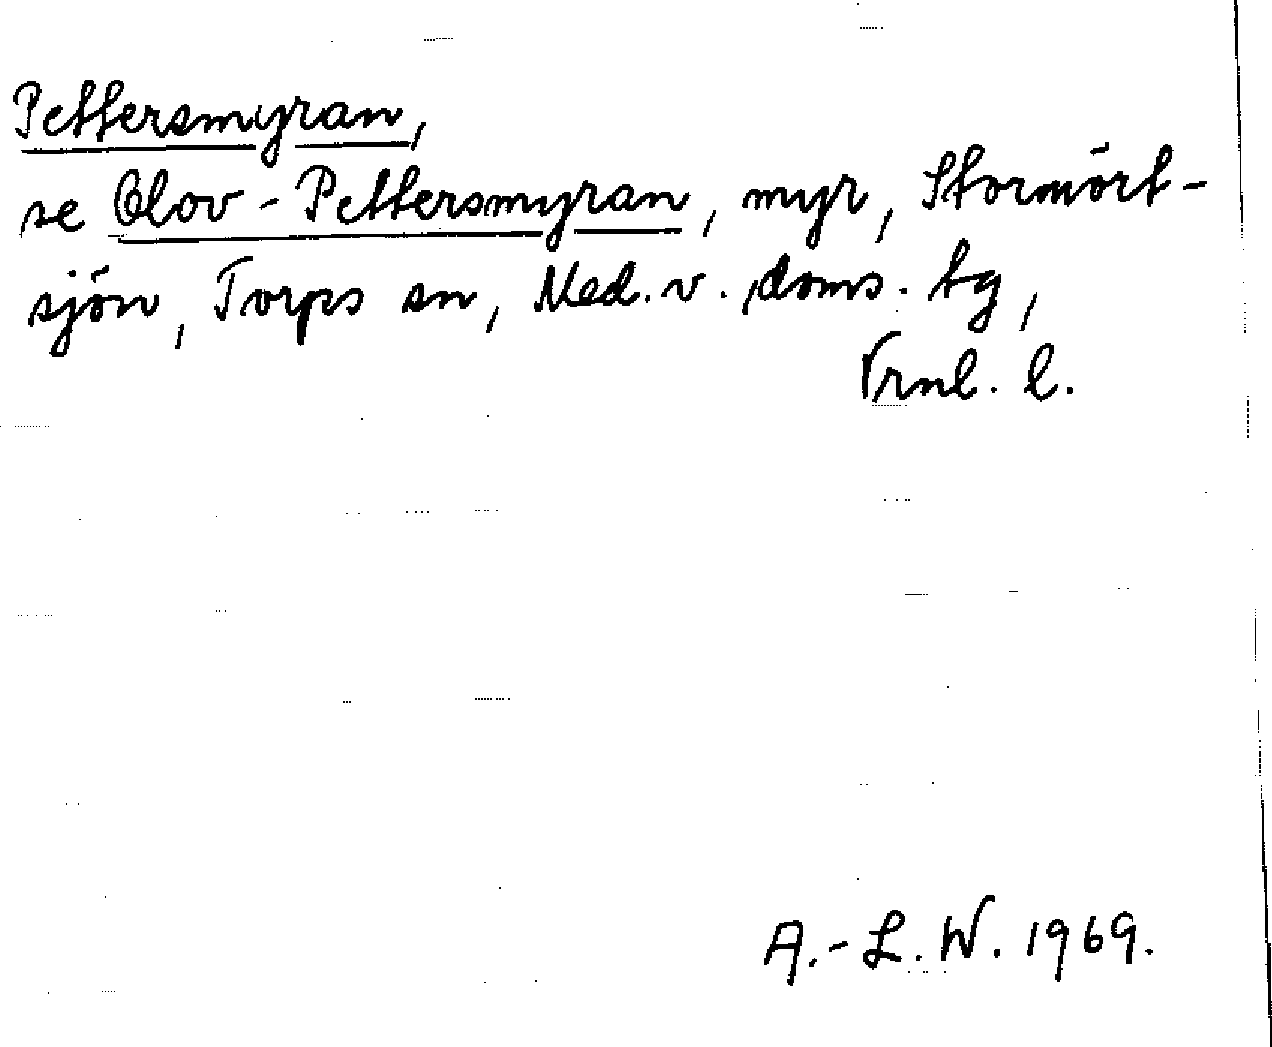 Pettersmyran,
se Olov-Pettersmyran, myr, Stormört-
sjön, Torps sn, Med. v. doms. tg,
Vrnl. l.
A.-L. W. 1969.